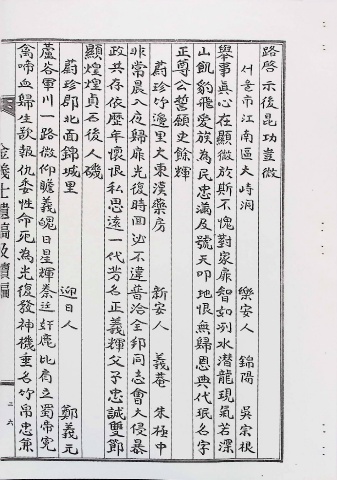 路啓示後昆功豈微
서울市江南區大峙洞 樂安人 錦陽 吳宗根
舉事真心在顯微於斯不愧對家扉智如列水潛龍現氣若深
山飢豹飛愛族為民忠滿及號天叩地恨無歸恩典代珉名字
正尊公誓願史餘輝
蔚珍竹邊里大東漢藥房 新安人 義菴 朱極中
非常晨入夜歸扉光復時回必不違普洽全邦同志會大侵暴
政共存依歷年懷恨私思遠一代芳名正義輝父子忠誠雙節
顯煌煌貞石後人磯
蔚珍郡北面錦城里 迎日人 鄭義元
蘆谷軍川一路微仰瞻義魄日星輝秦廷奸鹿比肩立蜀帝冤
禽啼血歸生歎報仇委性命死為光復發神機垂名竹帛忠兼
金義士遺稿及續編 二六